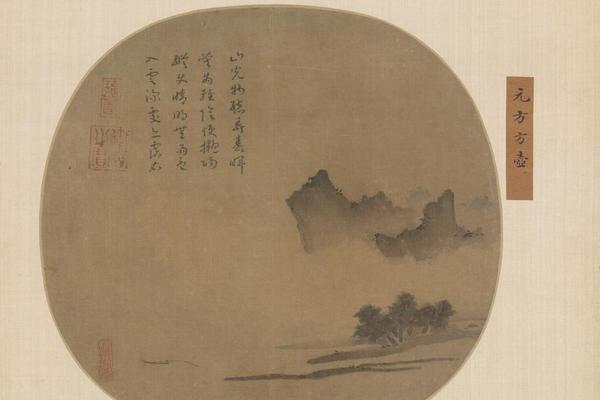 元方方壺
山光物態弄春暉
莫為輕陰便擬歸
縱使晴明無雨色
入雲深處亦霑衣